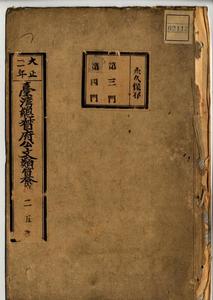 大正
二年
臺灣總督府公文類纂
二五
永久保存
第三門
第四門